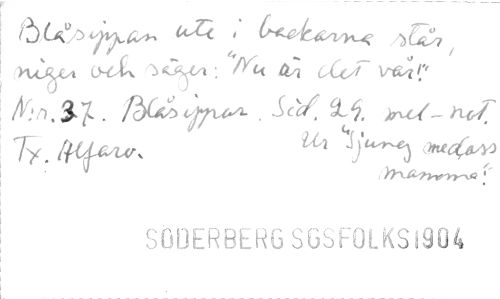 Blåsippan ute i backarna står,
niger och säger: "Nu är det vår!"
N:r. 37. Blåsippor. Sid. 29. mel-not.
Tx. Alfaro. Ur "Sjung med oss
mamma".
SÖDERBERG SGSFOLKS1904